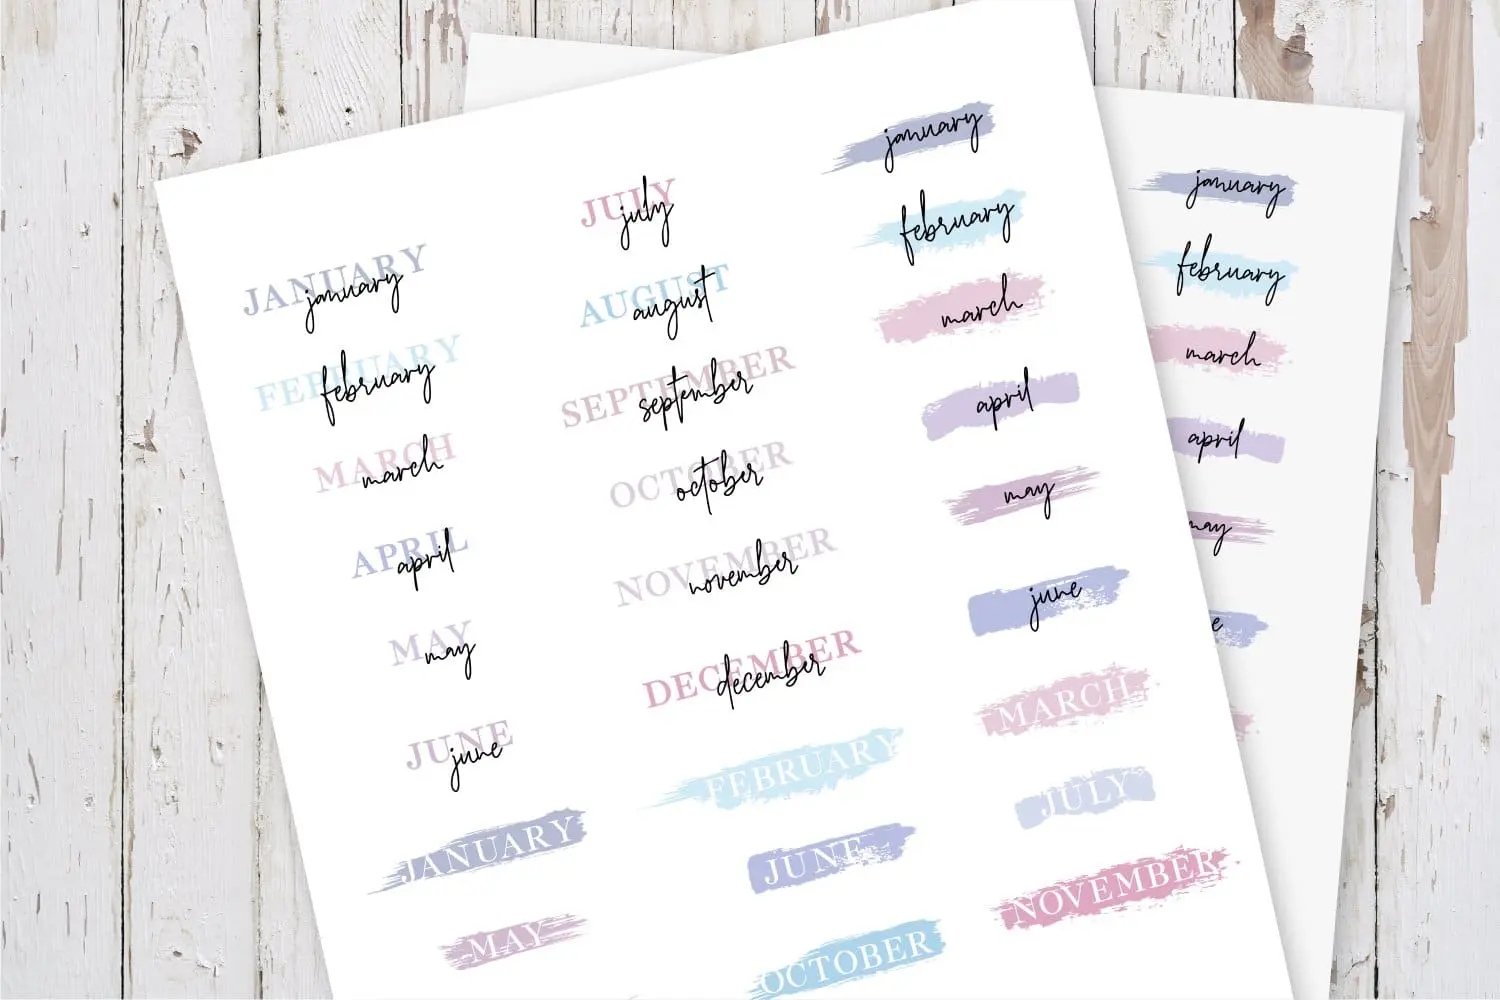 JANUARY
january
FEBRUARY
february
MARCH
march
APRIL
april
MAY
may
JUNE
june
JANUARY
MAY
JULY
july
AUGUST
august
SEPTEMBER
september
OCTOBER
october
NOVEMBER
november
DECEMBER
december
FEBRUARY
JUNE
OCTOBER
january
february
march
april
may
june
MARCH
JULY
NOVEMBER
january
february
march
april
may